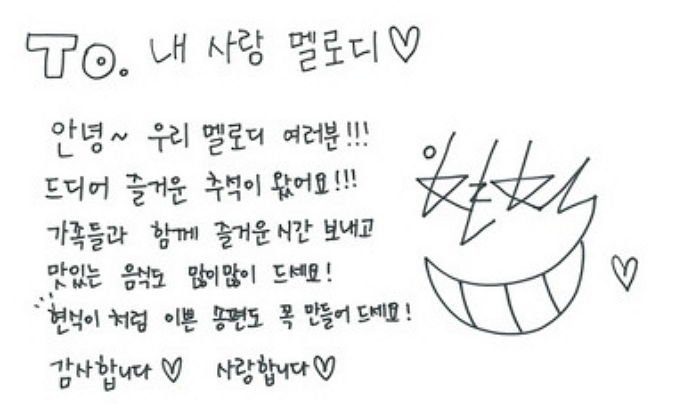 To. 내 사랑 멜로디♡
안녕~ 우리 멜로디 여러분!!!
드디어 즐거운 추석이 왔어요!!!
가족들과 함께 즐거운 시간 보내고
맛있는 음식도 많이많이 드세요!
현석이 처럼 이쁜 송편도 꼭 만들어 드세요!
감사합니다♡ 사랑합니다♡